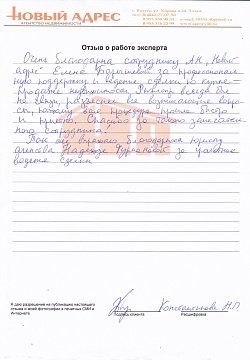 НОВЫЙ АДРЕС
АГЕНТСТВО НЕДВИЖИМОСТИ
Отзыв о работе эксперта
Очень благодарна сотруднику АН „Новый
адрес" Елене за профессиональ
ную поддержку и ведение сделки по купле-
продаже недвижимости. Риэлтор всегда был
на связи, разъяснял все возникающие вопро-
сы, вся процедура прошла быстро
и приятно. Спасибо за такого замечатель
ного сотрудника!
Так же выражаю благодарность юристу
агентства Надежде за грамотное
ведение сделки
Я даю разрешение на публикацию настоящего
отзыва и моей фотографии в печатных СМИ и
Интернете
Подпись клиента
Расшифровка